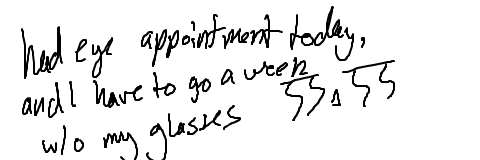 had eye appointment today,
and I have to go a week
w/o my glasses